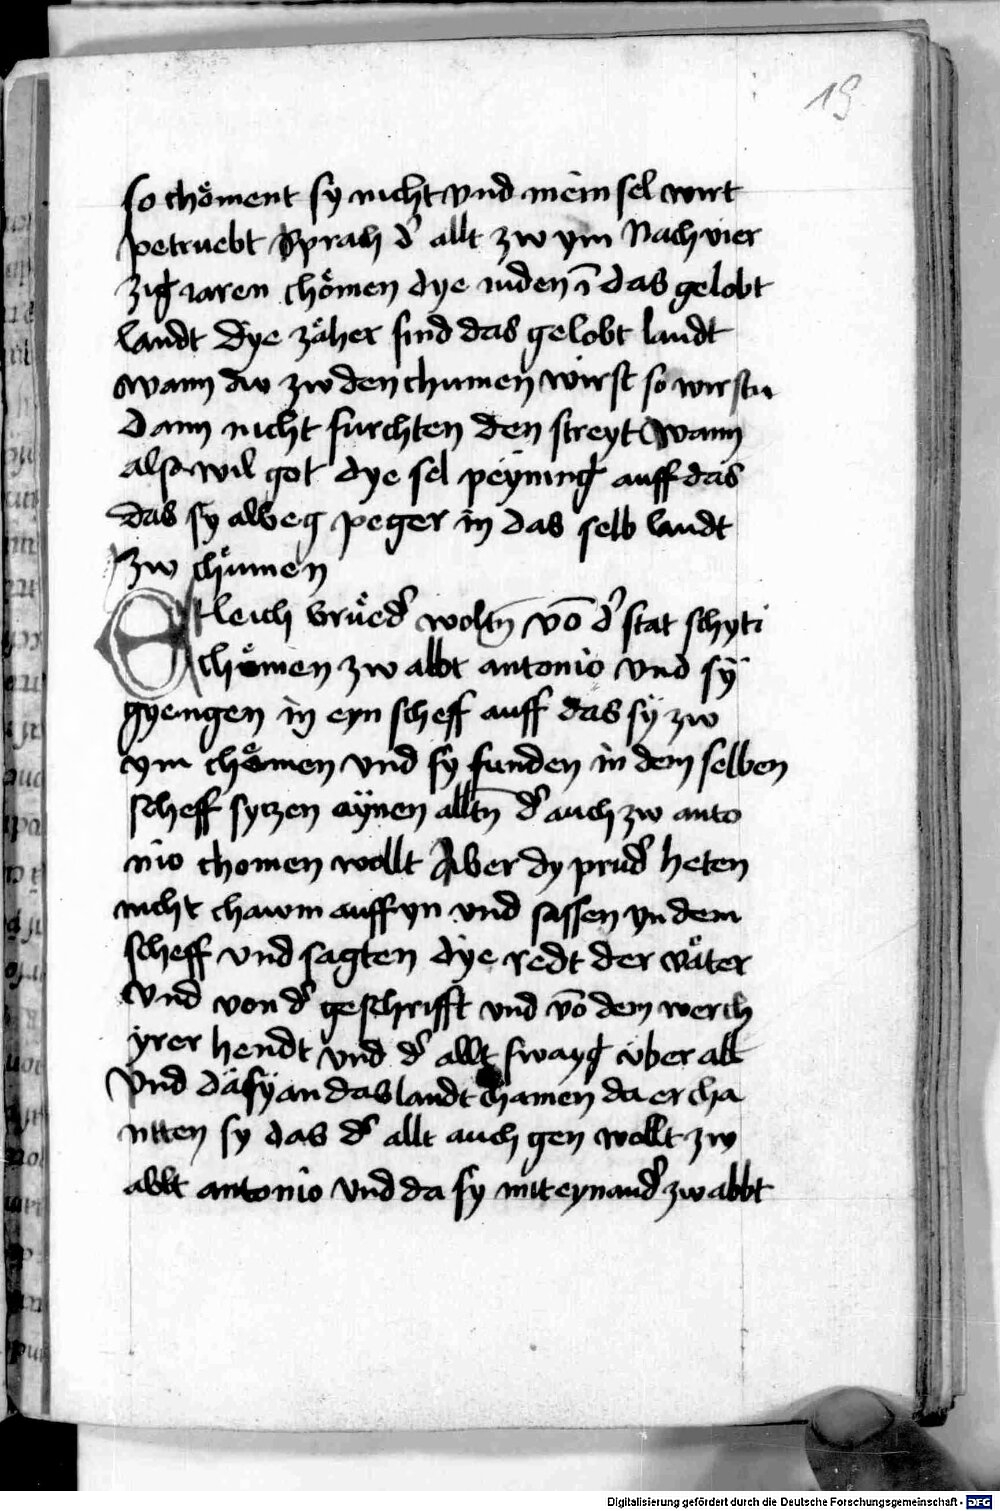 19
so chöment sy nicht vnd mein sel wirt
petruebt Sprach d̾ allt zw ym Nach vier
zig iaren chömen dye iuden ī das gelobt
landt Dye zäher sind das gelobt landt
wann dw zw den chumen wirst so wirstu
dann nicht furchten den streyt Wann
also wil got dye sel peyning auff das
das sy albeg peger in das selb landt
zw chümen
Etleich brüed̾ woltn̄ vō d̾ stat schyti
chömen zw abbt antonio vnd sy
gyengen in eyn scheff auff das sy zw
ym chömen vnd sy funden in dem selben
scheff syczen aynen alltn̄ d̾ auch zw anto
nio chomen wollt Aber dy prud̾ heten
nicht chawm auff yn vnd sassen yn dem
scheff vnd sagten dye redt der väter
vnd von d̾ geschrifft vnd vō dem werch
yrer hendt vnd d̾ allt swayg vber all
Vnd da sy an das landt chamen da ercha
nten sy das d̾ allt auch gen wollt zw
abbt antonio vnd da sy miteynand̾ zw abbt
Digitalisierung gefördert durch die Deutsche Forschungsgemeinschaft - DFG